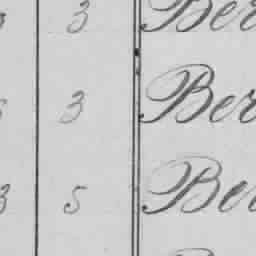 3 Ber
3 Ber
3 5 Be